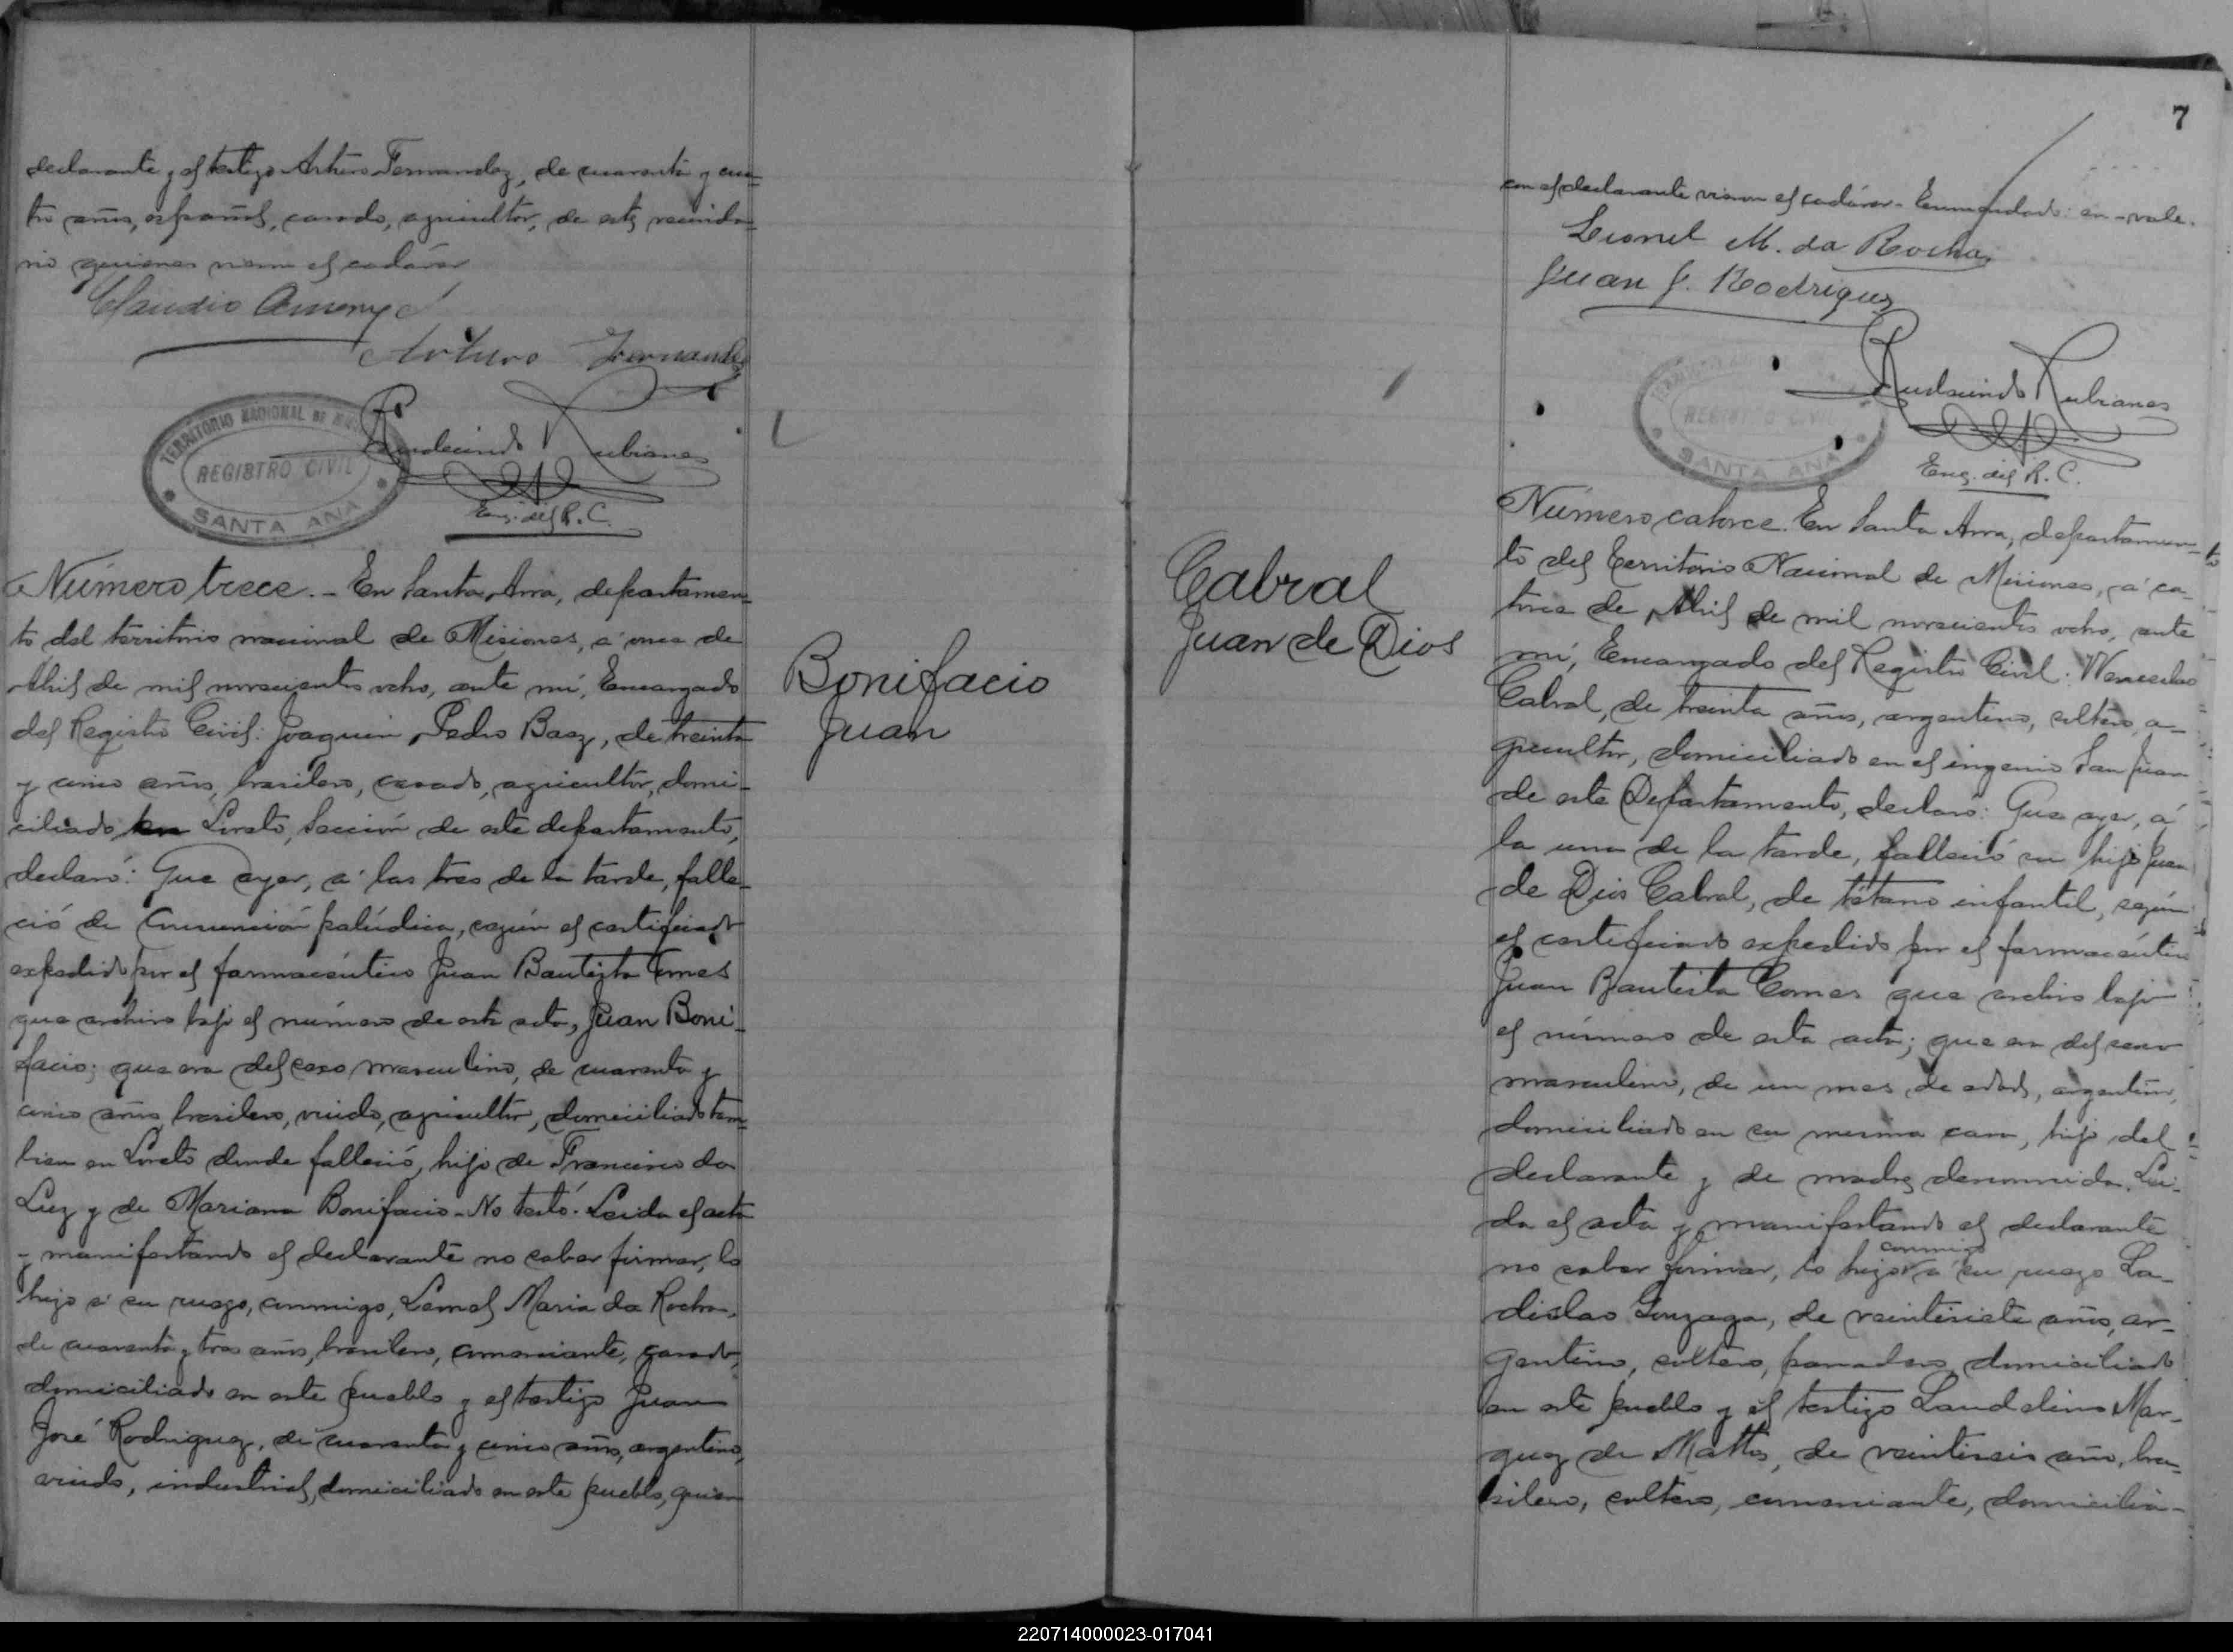 declarante y el testigo Arturo Fernandez, de cuarenta y cua-
tro años, español, casado, agricultor, de este vecinda-
rio quienes vieron el cadáver
Claudio
Arturo Fernandez
TERRITORIO NACIONAL DE MISIONES
REGISTRO CIVIL
SANTA ANA
Rudecindo Rubianes
Enc. del R. C.
Número trece. - En Santa Ana, departamen-
to del territorio nacional de Misiones, á once de
Abril de mil novecientos ocho, ante mí, Encargado
del Registro Civil: Joaquin Pedro Baez, de treinta
y cinco años, brasilero, casado, agricultor, domi-
ciliado en Loreto, Sección de este departamento,
declaró: Que ayer, á las tres de la tarde, falle-
ció de Consunción palúdica, según el certificado
expedido por el farmacéutico Juan Bautista Comes
que archivo bajo el número de esta acta, Juan Boni-
facio; que era del sexo masculino, de cuarenta y
cinco años, brasilero, viudo, agricultor, domiciliado tam-
bien en Loreto donde falleció, hijo de Francisco da
Luz y de Mariana Bonifacio - No testó. Leida el acta
y manifestando el declarante no saber firmar, lo
hizo á su ruego, conmigo, Leonel Maria da Rocha,
de cuarenta y tres años, brasilero, comerciante, casado,
domiciliado en este pueblo y el testigo Juan
José Rodriguez, de cuarenta y cinco años, argentino,
viudo, industrial, domiciliado en este pueblo, quien
Bonifacio
Juan
7
con el declarante vieron el cadáver - Enmendado: en - vale.
Leonel M. da Rocha
Juan J. Rodriguez
REGISTRO CIVIL
SANTA ANA
Rudecindo Rubianes
Enc. del R. C.
Cabral
Juan de Dios
Número catorce. En Santa Ana, departamen-to
to del Territorio Nacional de Misiones, á ca-
torce de Abril de mil novecientos ocho, ante
mí, Encargado del Registro Civil: Wenceslao
Cabral, de treinta años, argentino, soltero, a-
gricultor, domiciliado en el ingenio San Juan
de este Departamento, declaró: Que ayer, á
la una de la tarde, falleció su hijo Juan
de Dios Cabral, de tétano infantil, según
el certificado expedido por el farmacéutico
Juan Bautista Comes que archivo bajo
el número de esta acta; que era del sexo
masculino, de un mes de edad, argentino,
domiciliado en su misma casa, hijo del
declarante y de madre desconocida. Lei-
da el acta y manifestando el declarante
no saber firmar, lo hizo conmigo á su ruego La-
dislao Gonzaga, de veintisiete años, ar-
gentino, soltero, panadero, domiciliado
en este pueblo y el testigo Laudelino Mar-
quez de Mattos, de veintiseis años, bra-
silero, soltero, comerciante, domicilia-
220714000023-017041